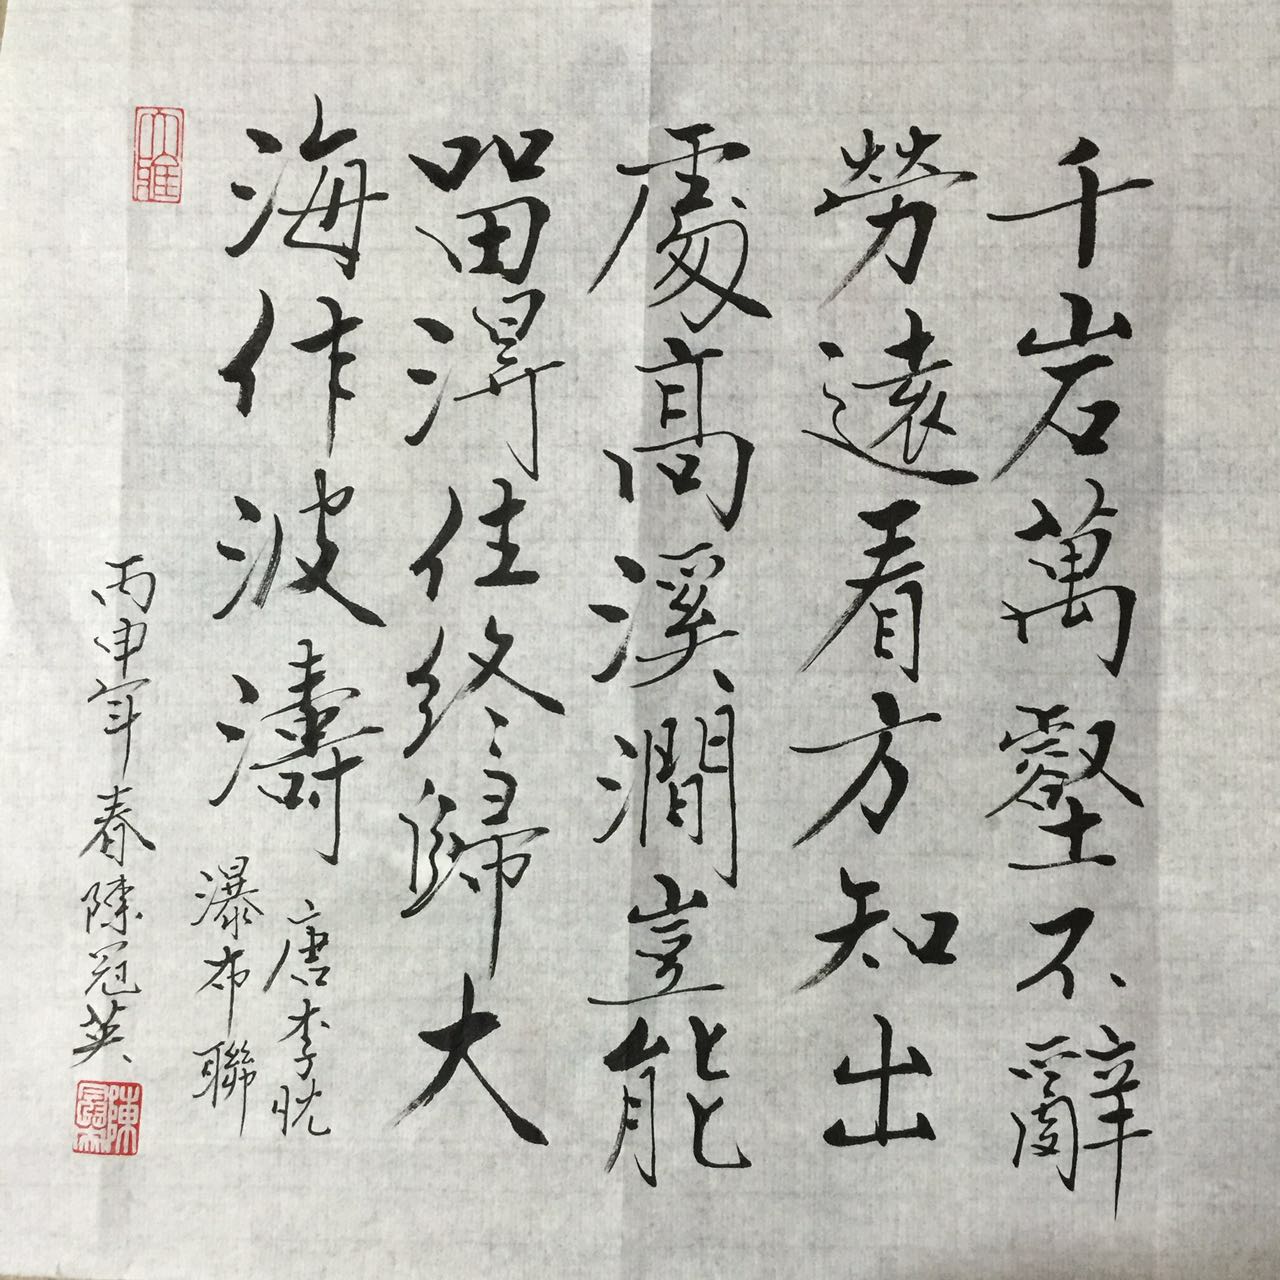 千岩萬壑不辭
勞遠看方知出
處高溪澗豈能
留得住終歸大
海作波濤
唐李忱
瀑布聯
丙申年春陳冠英
大雅